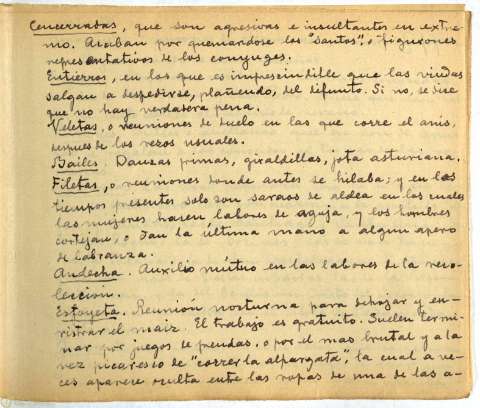 Cencerradas, que son agresivas e insultantes en extre-
mo. Acaban por quemandose los "santos", o figurones
representativos de los conyuges.
Entierros, en los que es imprescindible que las viudas
salgan a despedirse, plañendo, del difunto. Si no, se dice
que no hay verdadera pena.
Veletas, o reuniones de duelo en las que corre el anis,
despues de los rezos usuales.
Bailes. Danzas primas, giraldillas, jota asturiana.
Filetas, o reuniones donde antes se hilaba; y en los
tiempos presentes solo son saraos de aldea en los cuales
las mujeres hacen labores de aguja, y los hombres
cortejan, o dan la última mano a algun apero
de labranza.
Andecha. Auxilio mútuo en las labores de la reco-
lección.
Esfoyeta. Reunión nocturna para dehojar y en-
ristrar el maiz. El trabajo es gratuito. Suelen termi-
nar por juegos de prendas, o por el mas brutal y a la
vez picaresco de "correr la alpargata", la cual a ve-
ces aparece oculta entre las ropas de una de las a-